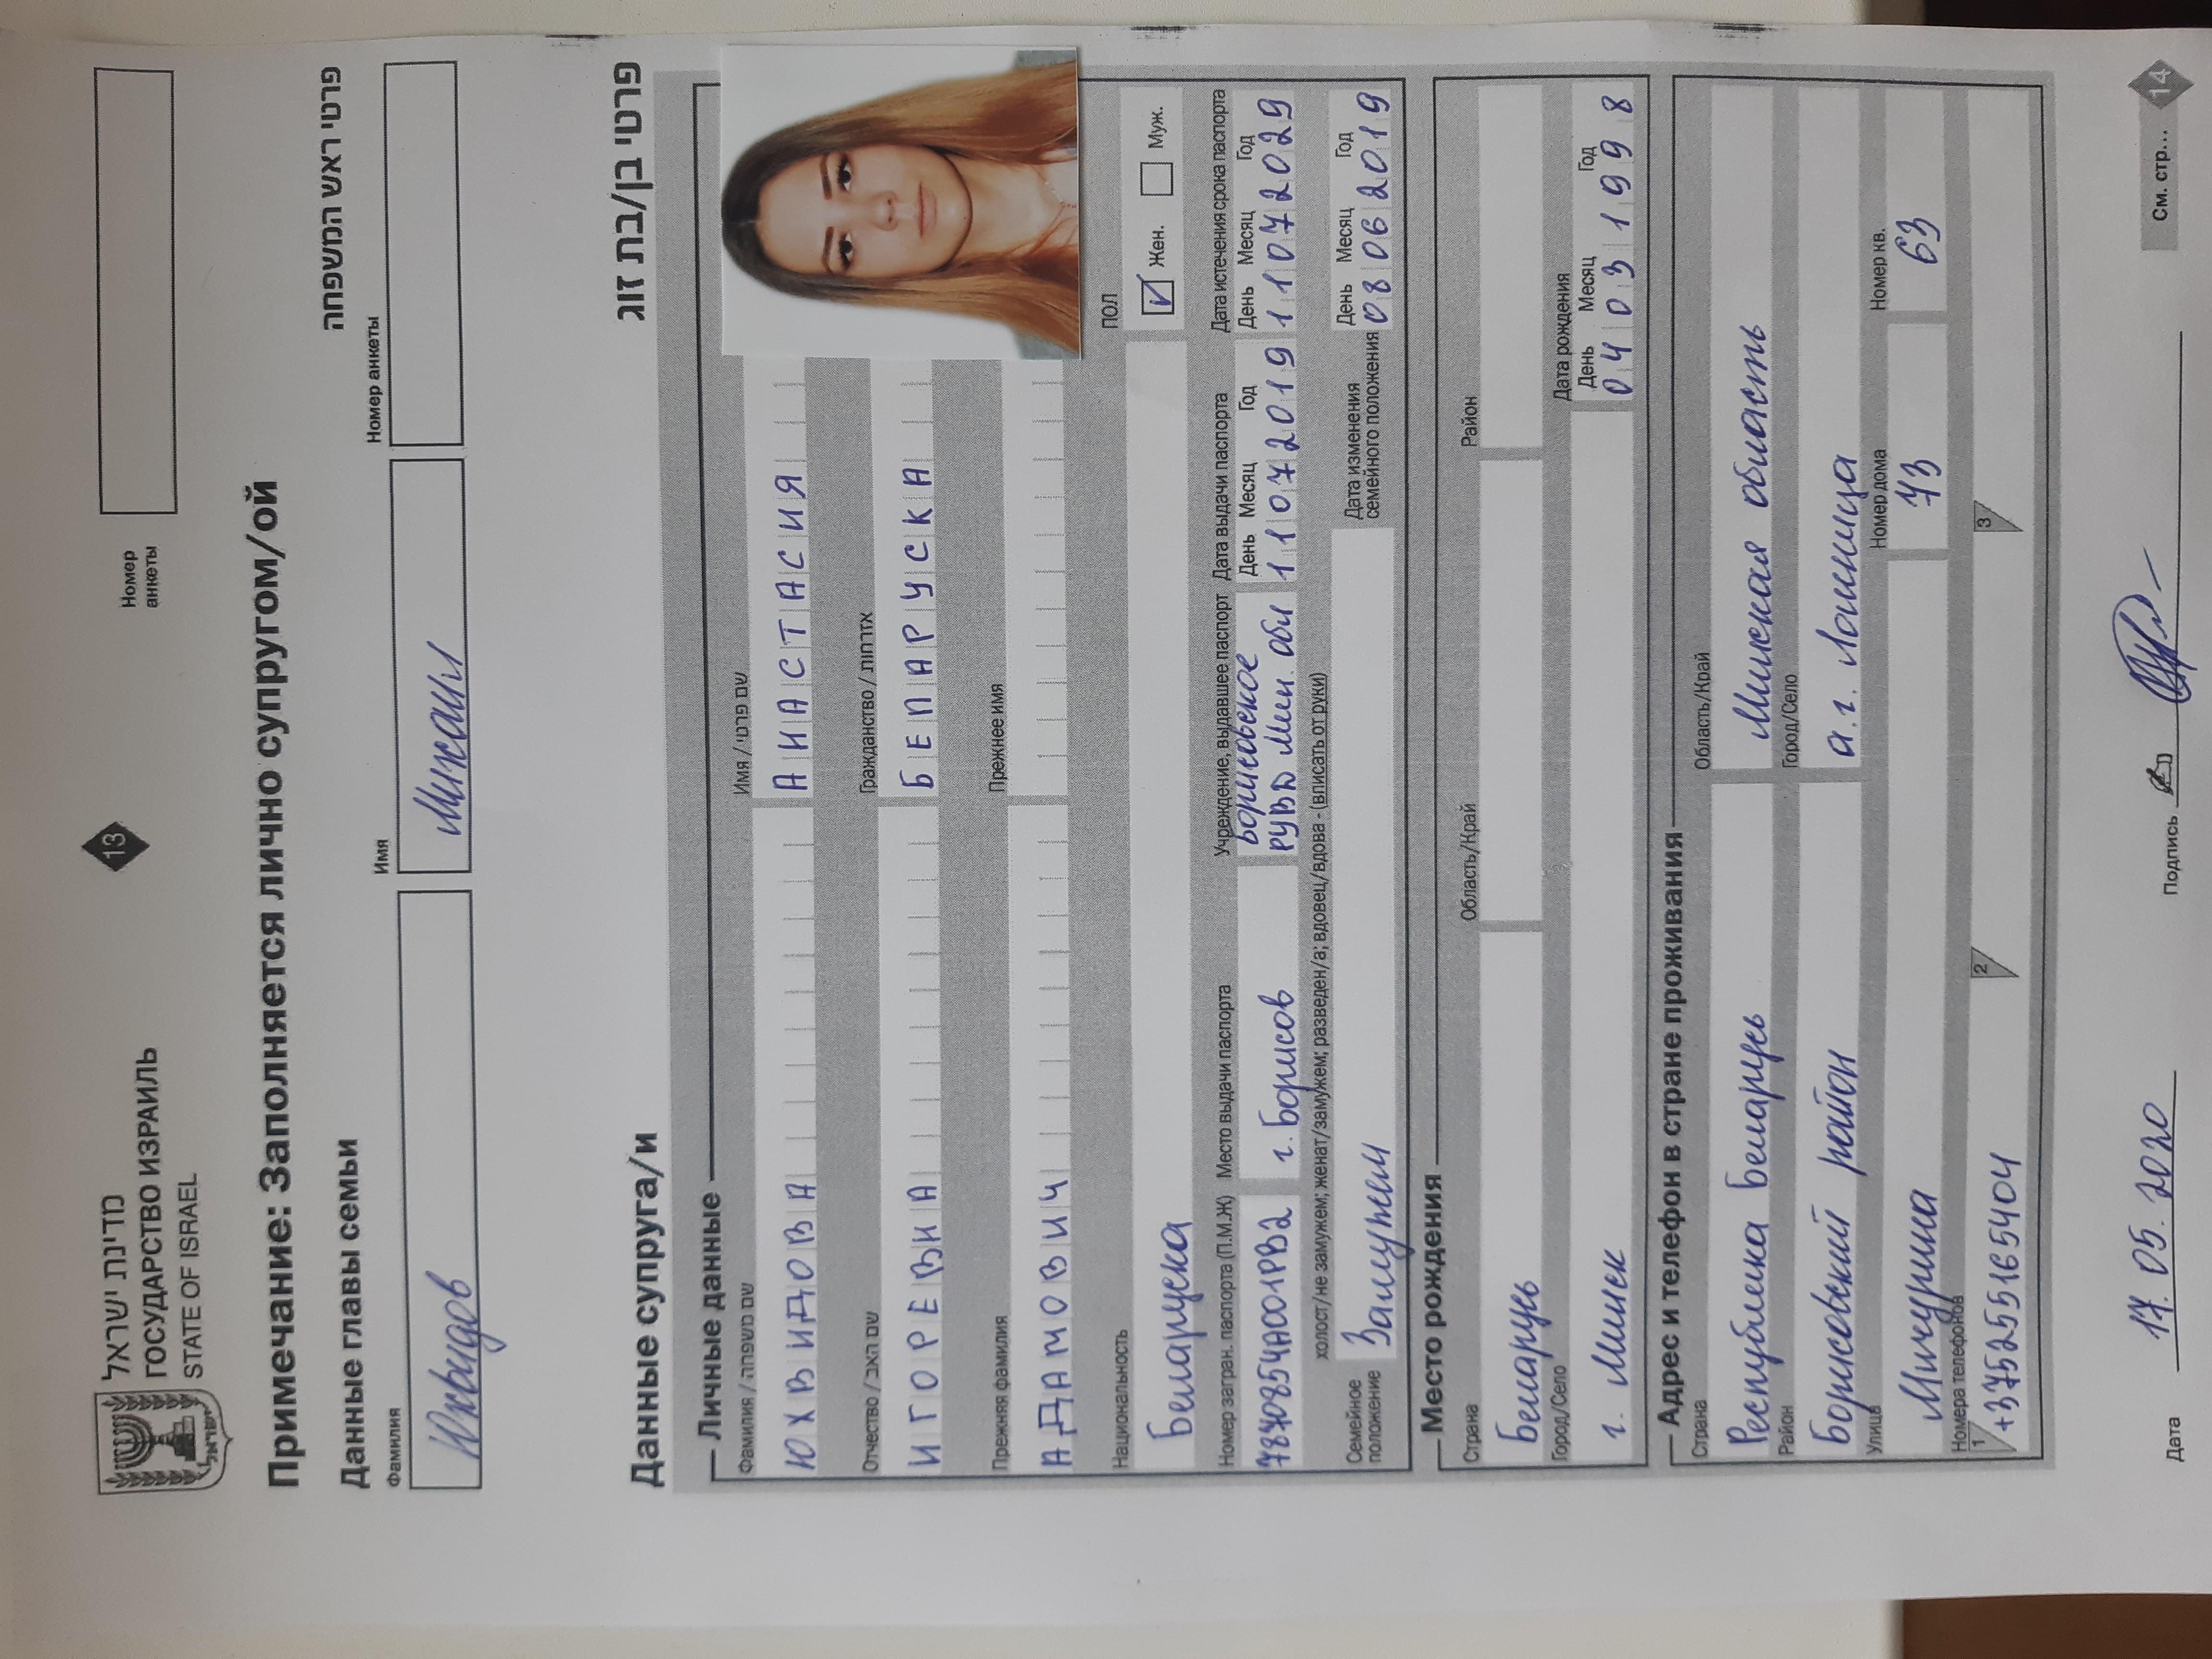 מדינת ישראל
ГОСУДАРСТВО ИЗРАИЛЬ
STATE OF ISRAEL
ישראל
13
Номер анкеты
Примечание: Заполняется лично супругом/ой
Данные главы семьи
פרטי ראש המשפחה
Фамилия Имя Номер анкеты
Юхвидов Михаил
Данные супруга/и
פרטי בן/בת זוג
Личные данные
Фамилия / שם משפחה Имя / שם פרטי
ЮХВИДОВА АНАСТАСИЯ
Отчество / שם האב Гражданство / אזרחות
ИГОРЕВНА БЕЛАРУСКА
Прежняя фамилия Прежнее имя
АДАМОВИЧ
Национальность ПОЛ
Беларуска Жен. Муж.
Номер загран. паспорта (П.М.Ж) Место выдачи паспорта Учреждение, выдавшее паспорт Дата выдачи паспорта Дата истечения срока паспорта
День Месяц Год День Месяц Год
7870854А001РВ2 г. Борисов Борисовское РУВД Мин. обл 11072019 11072029
холост/не замужем; женат/замужем; разведен/а; вдовец/вдова - (вписать от руки)
Семейное положение Замужем Дата изменения семейного положения День Месяц Год 08062019
Место рождения
Страна Область/Край Район
Беларусь
Город/Село Дата рождения
День Месяц Год
г. Минск 04031998
Адрес и телефон в стране проживания
Страна Область/Край
Республика Беларусь Минская область
Район Город/Село
Борисовский район а.г. Лошница
Улица Номер дома Номер кв.
Мичурина 73 63
Номера телефонов
1 +375255165404 2 3
Дата 17.05.2020 Подпись См. стр... 14